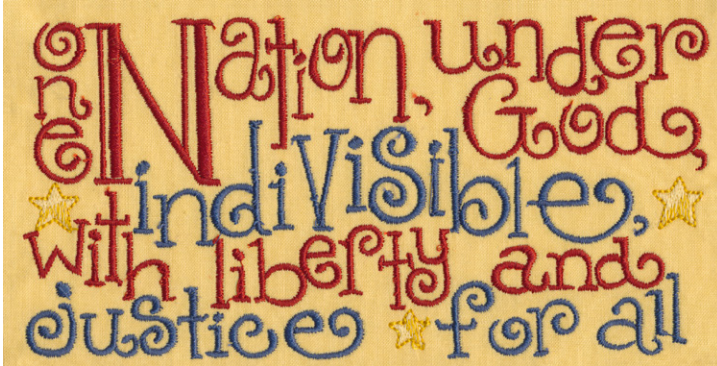 one Nation, under God,
indiVisible,
with liberty and
justice for all